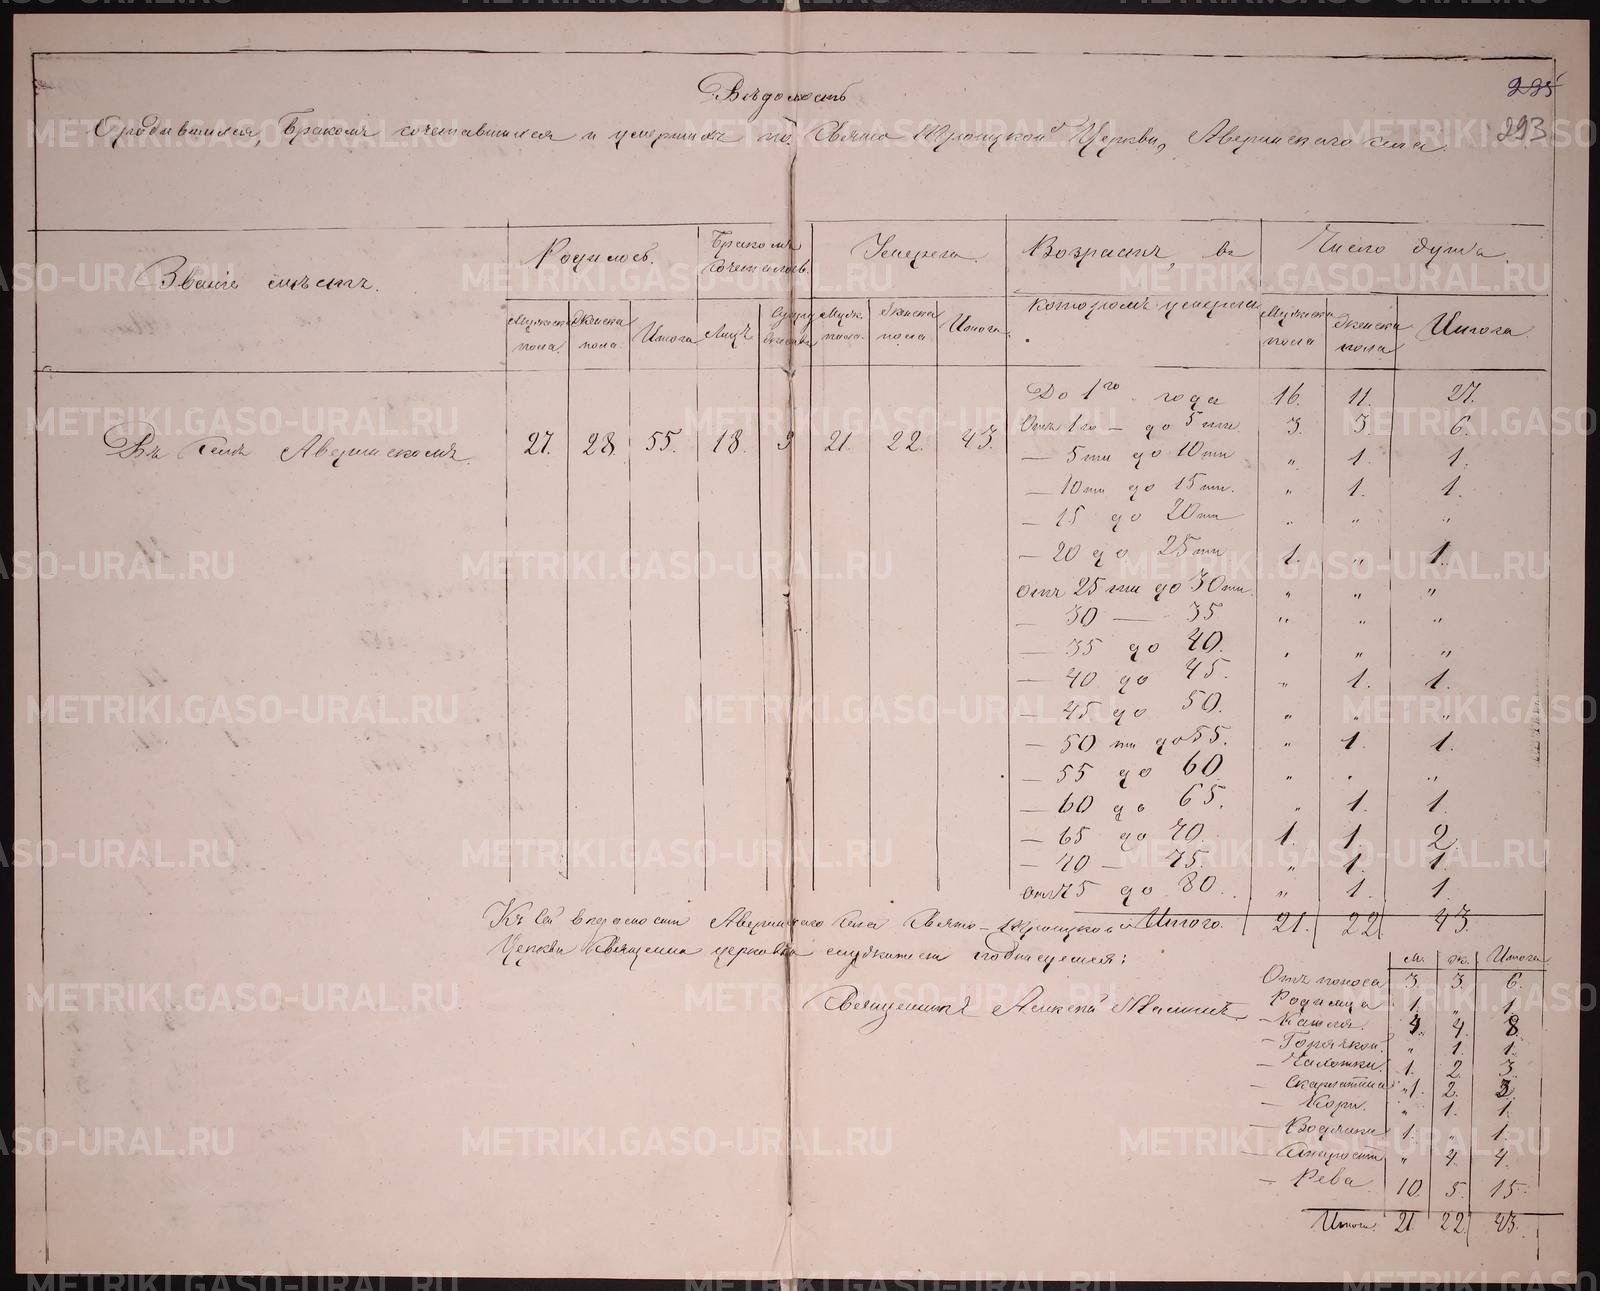 Вѣдомость
О родившихся, бракомъ сочетавшихся и умершихъ по Свято Троицкой Церкви, Аверинскаго села.
225
293
Званіе мѣстъ.
Родилось.
Бракомъ сочеталось.
Умерло.
Возрастъ, въ которомъ умерли
Число душъ.
Мужеска пола.
Женска пола.
Итого
Лицъ
Супружествъ
Муж. пола.
Женска пола
Итого.
Мужеска пола
Женска пола
Итого
Въ селѣ Аверинскомъ. 27. 28. 55. 18. 9 21. 22. 43.
До 1го года 16. 11. 27.
Отъ 1го — до 5ти. 3. 3. 6.
— 5ти до 10ти „ 1. 1.
— 10ти до 15ти. „ 1. 1.
— 15 до 20ти „ „ „
— 20 до 25ти 1. „ 1.
отъ 25ти до 30ти. „ „ „
— 30 — 35 „ „ „
— 35 до 40. „ „ „
— 40 до 45. „ 1. 1.
— 45 до 50. „ „ „
— 50ти до 55. „ 1. 1.
— 55 до 60 „ „ „
— 60 до 65. „ 1. 1.
— 65 до 70. 1. 1. 2.
— 70 — 75. „ 1. 1.
отъ 75 до 80. „ 1. 1
Итого. 21. 22 43.
Къ сей вѣдомости Аверинскаго села Свято-Троицкой
Церкви Священно церковно служители подписуемся:
Священникъ Алексѣй
м. ж. Итого
Отъ поноса 3. 3. 6.
Родимца 1. „ 1.
— Кашля. 4. 4. 8.
— Горячки. „ 1. 1.
— Чахотки. 1. 2. 3.
— Скарлатины 1. 2. 3.
— Кори. „ 1. 1.
— Водянки 1. „ 1.
— Старости „ 4. 4.
— Рева 10. 5. 15.
Итого. 21 22. 43.
METRIKI.GASO-URAL.RU